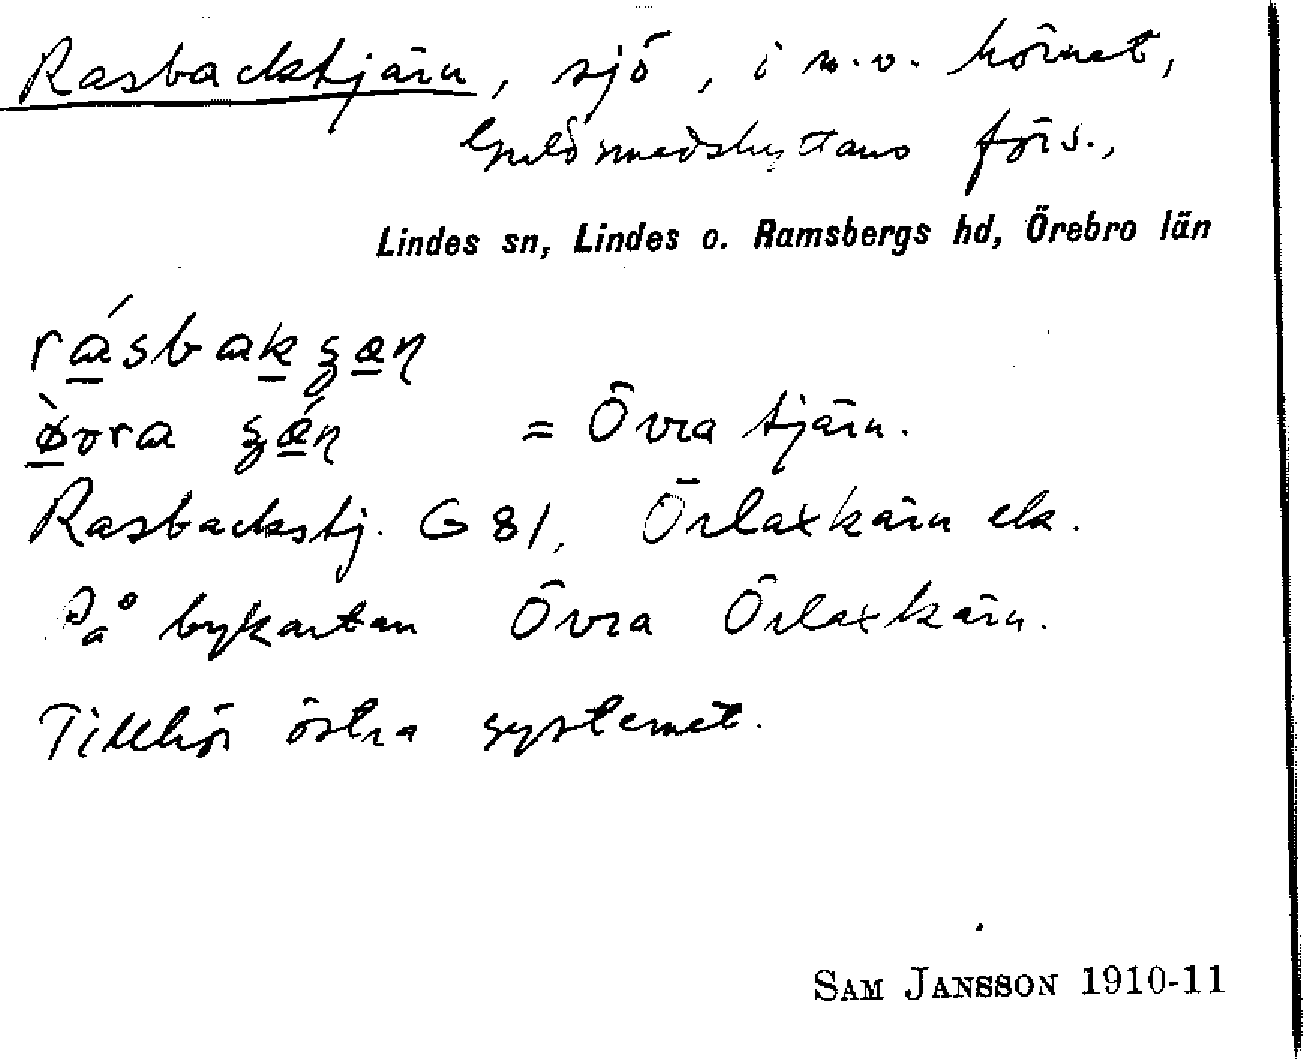 Rasbackstjärn, sjö, i n.v. hörnet,
Guldsmedshyttans förs.,
Lindes sn, Lindes o. Ramsbergs hd, Örebro län
= Övra tjärn.
Rasbackstj. G 81, Örlaxkärn ek.
På bykartan Övra Örlaxkärn.
Tillhör östra systemet.
SAM JANSSON 1910-11